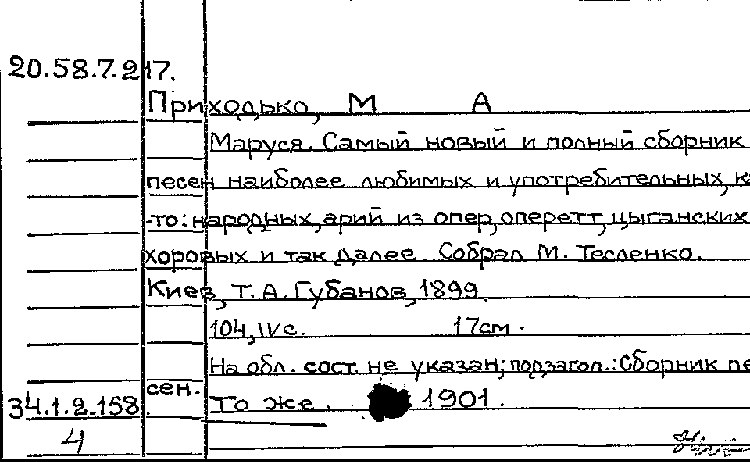 20.58.7.217.
Приходько, М А
Маруся. Самый новый и полный сборник
песен наиболее любимых и употребительных, к
-то: народных, арий из опер, оперетт, цыганских
хоровых и так далее. Собрал М. Тесленко.
Киев, Т. А. Губанов, 1899.
104, IV с. 17см.
На обл. сост. не указан; подзагол.: Сборник пе
сен.
34.1.2.158. То же. 1901.
4